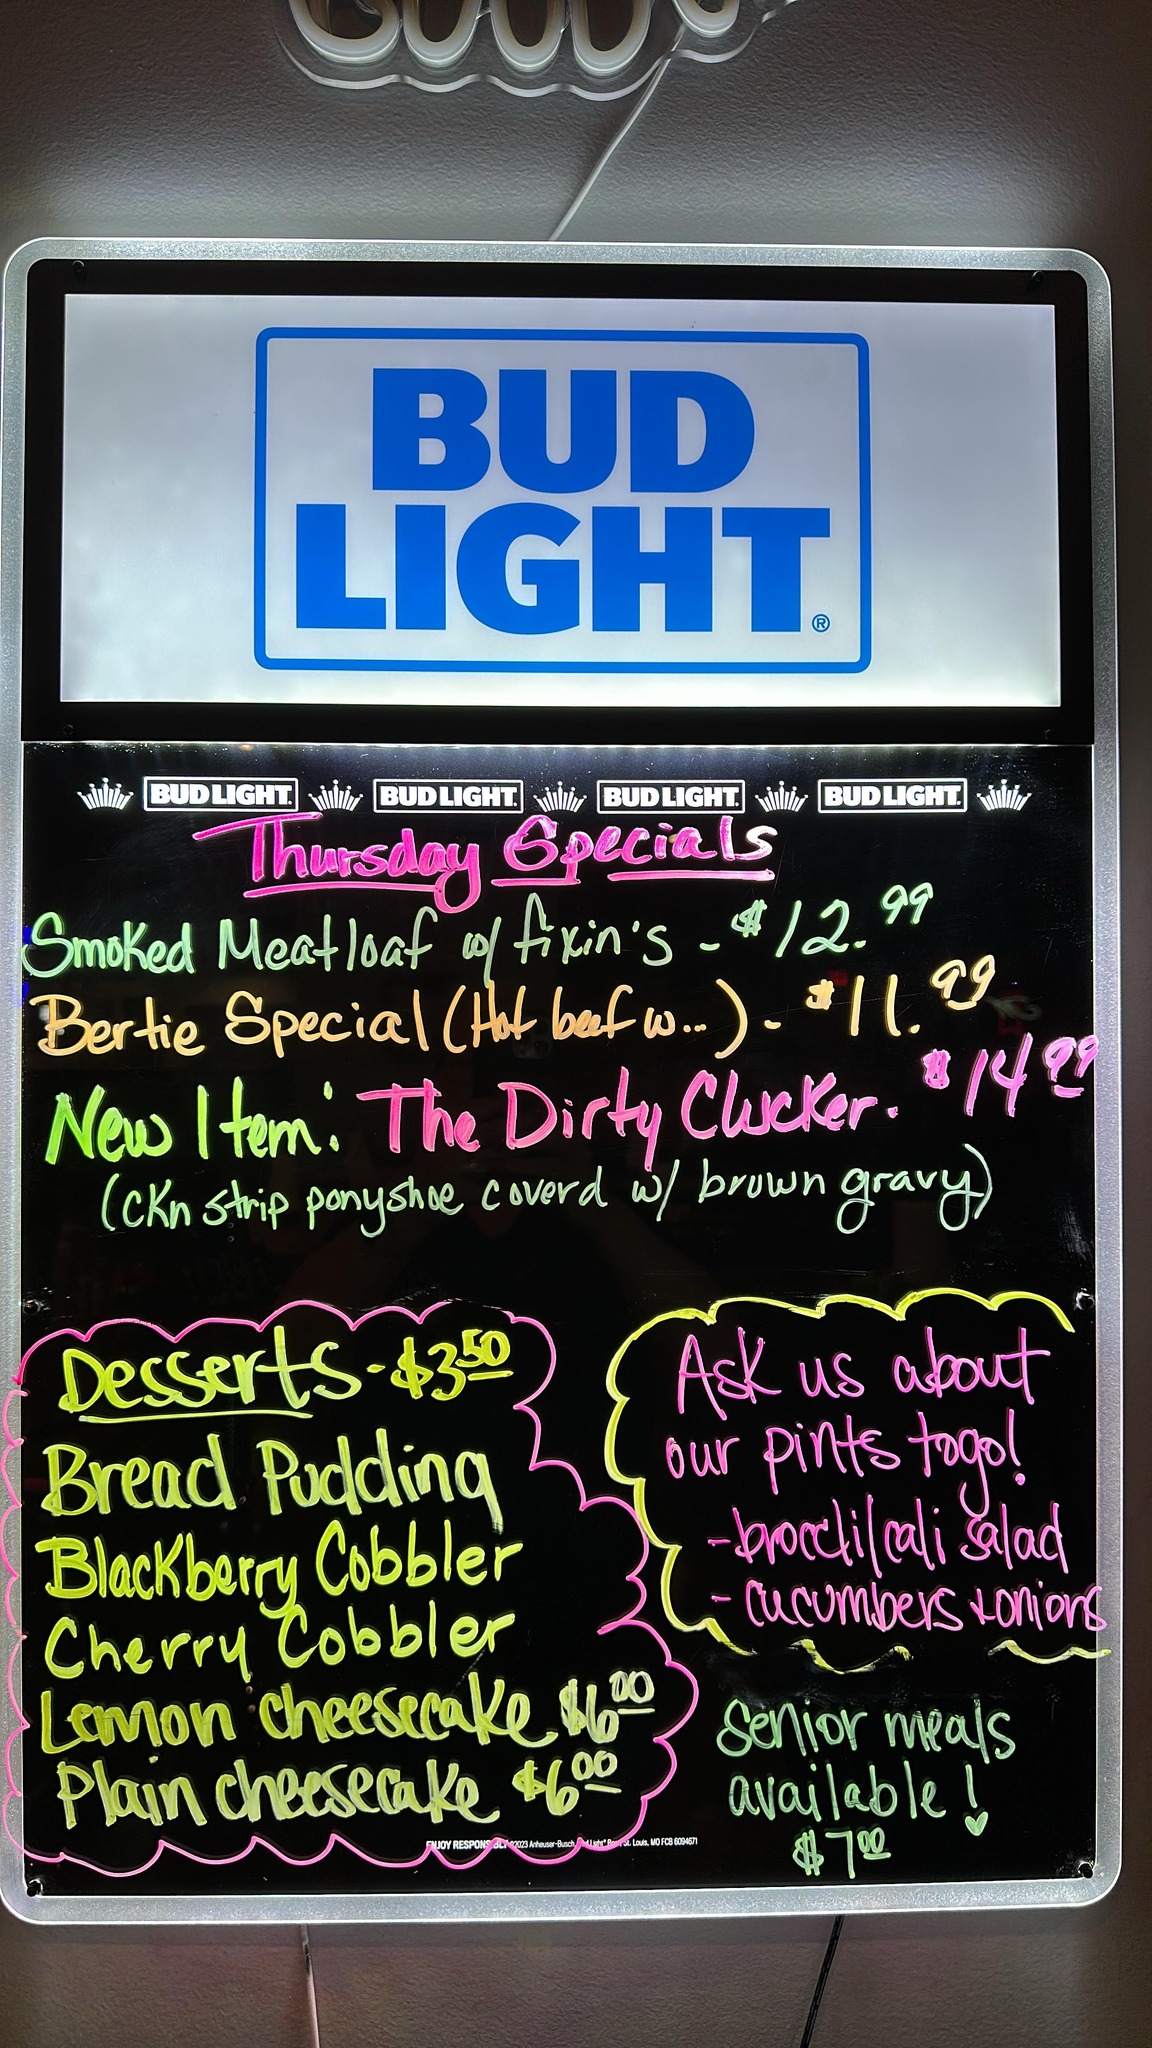 BUD
LIGHT®
BUD LIGHT. BUD LIGHT. BUD LIGHT. BUD LIGHT.
Thursday Specials
Smoked Meatloaf w/ fixin's - $12.99
Bertie Special (Hot beef w...) - $11.99
New Item: The Dirty Clucker. $14.99
(CKn strip ponyshoe coverd w/ brown gravy)
Desserts - $3.50
Bread Pudding
Blackberry Cobbler
Cherry Cobbler
Lemon cheesecake $6.00
Plain cheesecake $6.00
Ask us about
our pints togo!
- brocc/cali salad
- cucumbers + onions
Senior meals
available!
$7.00
ENJOY RESPONSIBLY ©2023 Anheuser-Busch, Light® St. Louis, MO FCB 6094671